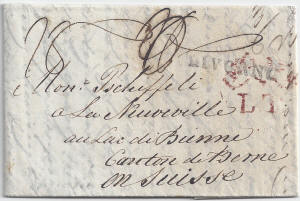 LIVORNO
L I
Mon.r Tscheffeli
à La Neuveville
au Lac di Bienne
Canton de Berne
en Suisse